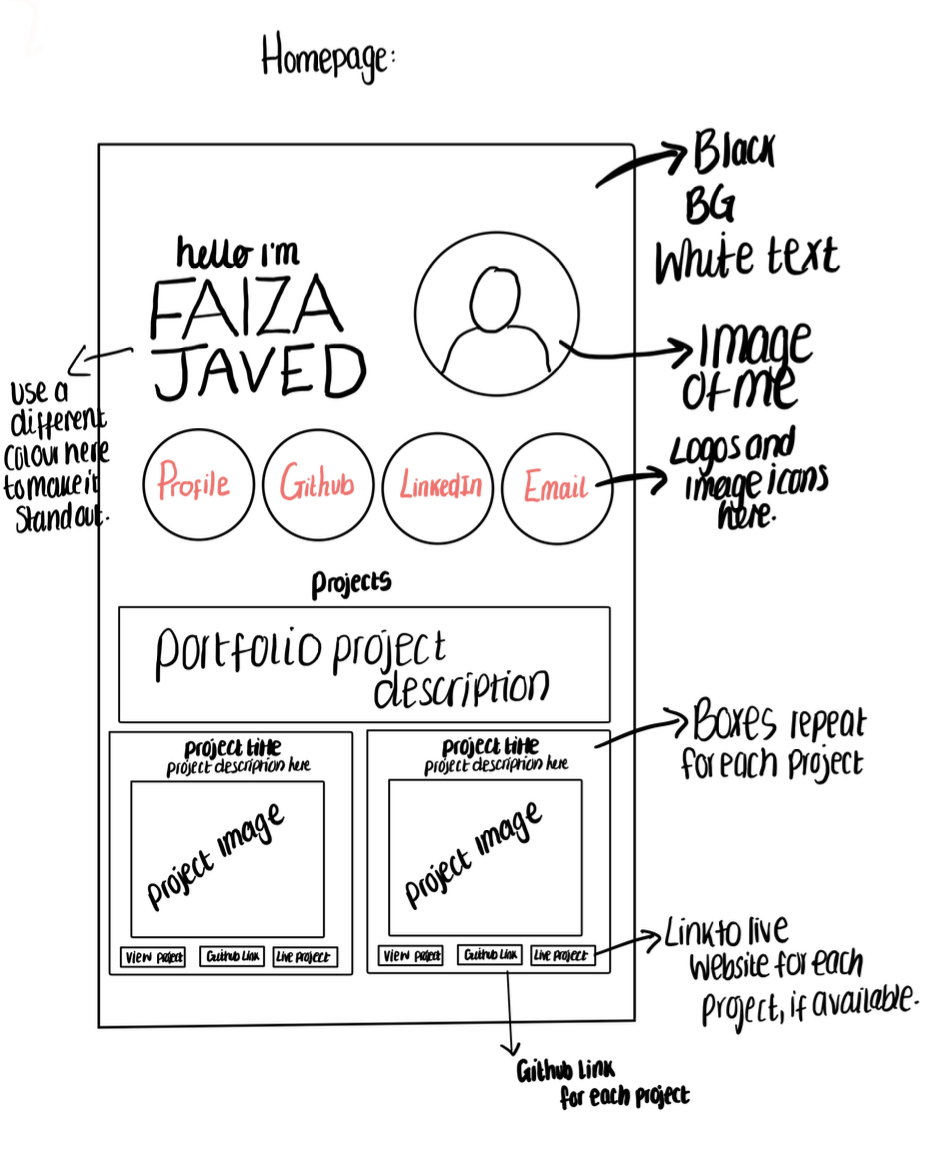 Homepage:
Black
BG
White text
hello i'm
FAIZA
JAVED
Image
of me
use a
different
colour here
to make it
Stand out.
Logos and
image icons
here.
Profile
Github
LinkedIn
Email
Projects
portfolio project
description
Boxes repeat
for each Project
project title
project description here
project image
View project
Github Link
Live Project
project title
project description here
project image
View project
Github Link
Live Project
Link to live
website for each
project, if available.
Github Link
for each project